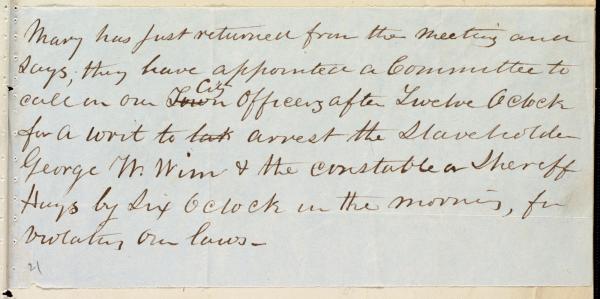 Mary has just returned from the meeting and
says, they have appointed a Committee to
call on our Town City Officers after Twelve Oclock
for a writ to tak arrest the Slaveholder
George W. Wim & the constable or Sheriff
Hays by Six Oclock in the morning, for
violating our laws-
21